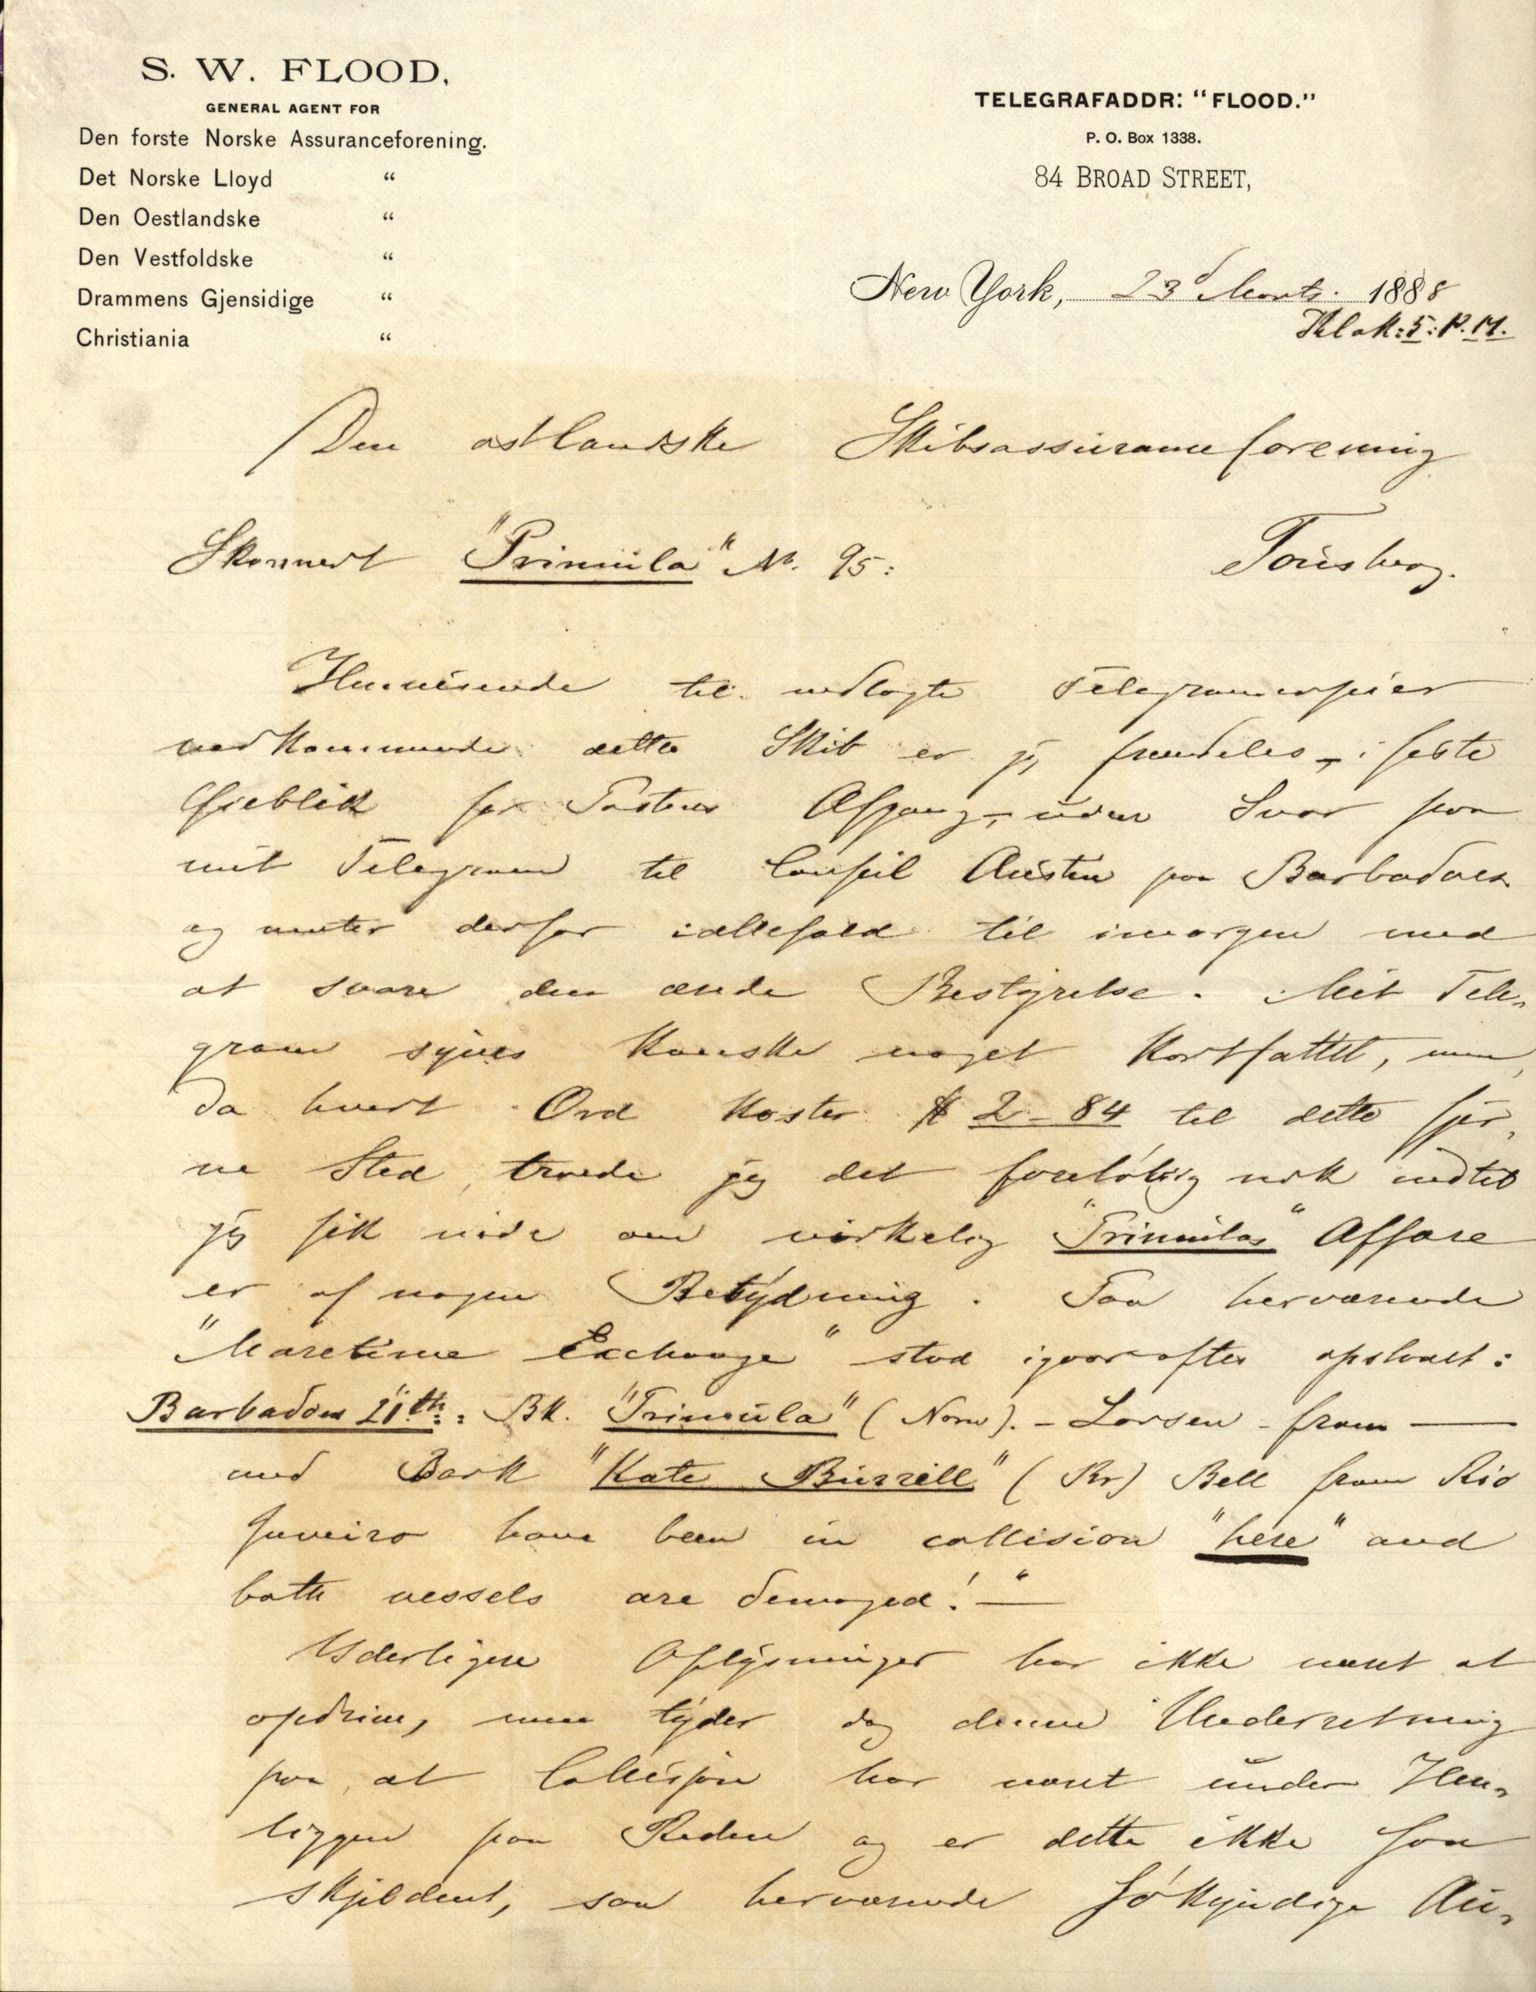 S. W. FLOOD,
GENERAL AGENT FOR
Den forste Norske Assuranceforening.
Det Norske Lloyd "
Den Oestlandske "
Den Vestfoldske "
Drammens Gjensidige "
Christiania "
TELEGRAFADDR: "FLOOD."
P. O. Box 1338.
84 BROAD STREET,
New York, 23d Marts. 1888
Klok: 5: P. M.
Den østlandske Skibsassuranceforening
Skonnert "Primula" No. 95:
Tönsberg.
Henvisende til vedlagte Telegramcopier
vedkommende dette Skib er jeg fremdeles, i sidste
Øieblik før Postens Afgang, uden Svar paa
mit Telegram til Consül Austin paa Barbadoes
og venter derfor iallefald til imorgen med
at svare den ærede Bestyrelse. Mit Tele-
gram synes kanske noget kortfattet, men,
da hvert Ord koster $ 2-84 til dette fjer-
ne Sted, troede jeg det foreløbig nok indtil
jeg fik vide om virkelig "Primulas" Affære
er af nogen Betydning. Paa herværende
"Maretime Exchange" stod igaaraftes opslaaet:
Barbadoes 21th: Bk. "Primula" (Norw). - Larsen - from —
and Bark "Kate Burrill" (Br) Bell from Rio
Janeiro have been in collision "here" and
both vessels are damaged! — "
Yderligere Oplysninger har ikke været at
opdrive, men tyder dog denne Underretning
paa, at Collisjon har været under Hen-
liggen paa Reden og er dette ikke saa
skjeldent, saa herværende Søkyndige An-